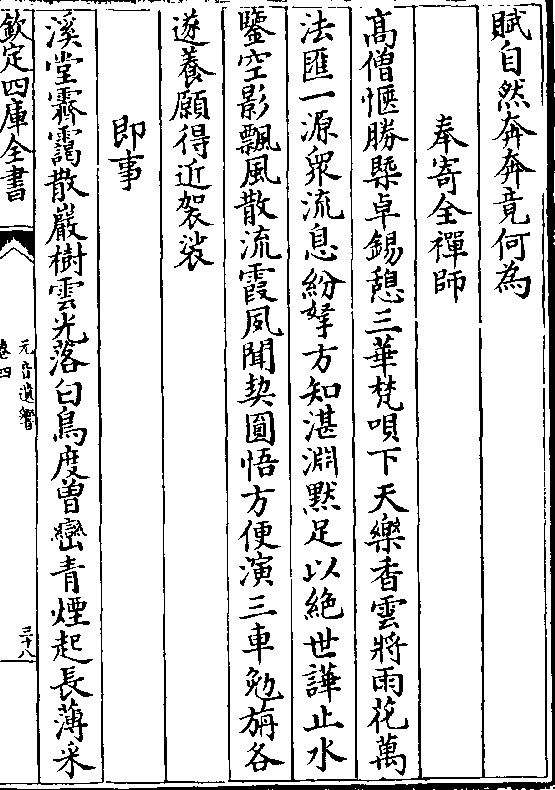 賦自然奔奔竟何為
奉寄全禪師
高僧愜勝槩卓錫憩三華梵唄下天樂香雲將雨花萬
法匯一源衆流息紛拏方知湛淵黙足以絶世譁止水
鑒空影飄風散流霞夙聞契圎悟方便演三車勉旃各
遂養願得近袈裟
即事
溪堂霽靄散巖樹雲光落白鳥度曾巒青煙起長薄采
欽定四庫全書
元音遺響
卷四
三十八